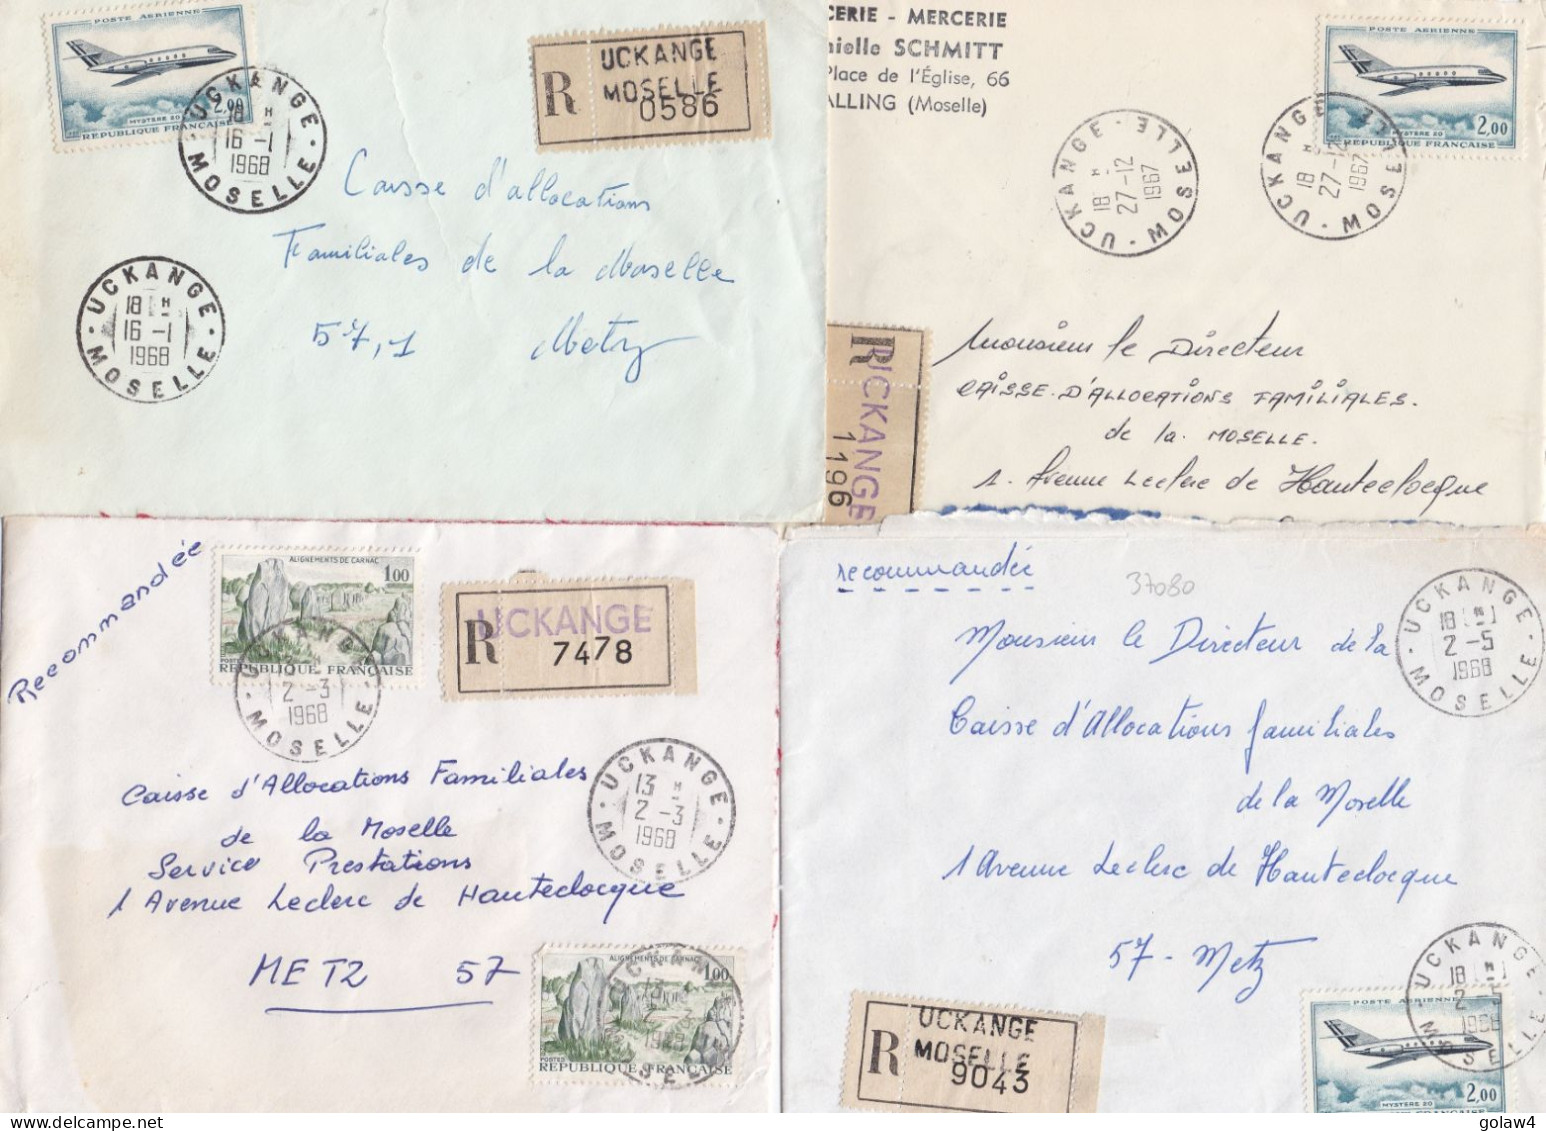 POSTE AÉRIENNE
2,00
MYSTERE 20
REPUBLIQUE FRANÇAISE
UCKANGE
18 H
16 -1
1968
MOSELLE
R
UCKANGE
MOSELLE
0586
Caisse d'allocations
Familiales de la Moselle
57,1 Metz
UCKANGE
18 H
16 -1
1968
MOSELLE
CERIE - MERCERIE
nielle SCHMITT
Place de l'Église, 66
ALLING (Moselle)
POSTE AÉRIENNE
2,00
REPUBLIQUE FRANÇAISE
UCKANGE
18 H
27-12
1967
MOSELLE
UCKANGE
18 H
27-12
1967
MOSELLE
R
UCKANGE
1196
Monsieur le Directeur
CAISSE D'ALLOCATIONS FAMILIALES.
de la MOSELLE.
1. Avenue Leclerc de Hauteclocque
Recommandée
ALIGNEMENTS DE CARNAC
1,00
POSTES
REPUBLIQUE FRANÇAISE
UCKANGE
2 -3
1968
MOSELLE
R
UCKANGE
7478
UCKANGE
13 H
2 -3
1968
MOSELLE
Caisse d'Allocations Familiales
de la Moselle
Service Prestations
1 Avenue Leclerc de Hauteclocque
METZ 57
ALIGNEMENTS DE CARNAC
1,00
POSTES
REPUBLIQUE FRANÇAISE
UCKANGE
13 H
2 -3
1968
MOSELLE
recommandée
37080
UCKANGE
18 H
2 -5
1968
MOSELLE
Monsieur le Directeur de la
Caisse d'Allocations familiales
de la Moselle
1 Avenue Leclerc de Hauteclocque
57 - Metz
R
UCKANGE
MOSELLE
9043
UCKANGE
18 H
2 -5
1968
MOSELLE
POSTE AÉRIENNE
MYSTERE 20
2,00
FRANÇAISE
golaw4